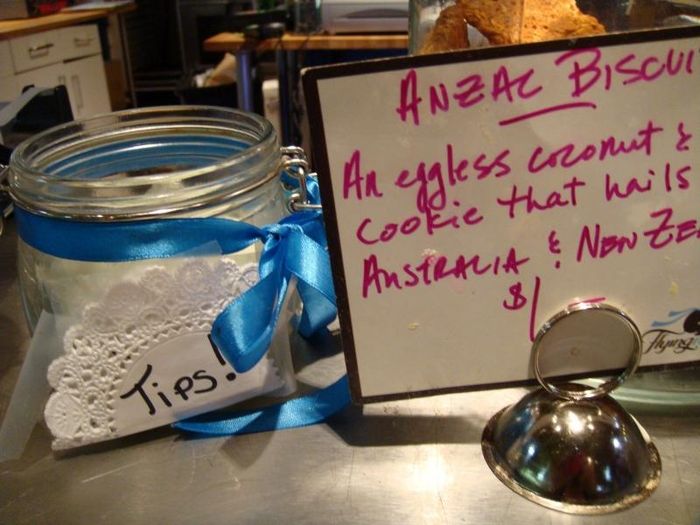 Tips!
ANZAC BISCUI
An eggless coconut &
cookie that hails
AUSTRALIA & NEW ZE
$1
Flying